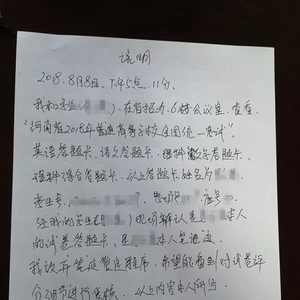 说明
2018.8月8日,下午5点.11分.
我和考生( ).在省招办.6楼会议室.查看.
"河南省2018年普通高等学校全国统一考试".
英语答题卡、语文答题卡、理科数学答题卡.
理科综合答题卡.以上答题卡姓名为
考生号, 座号
经我的考生( )现场辨认是 本人
的试卷答题卡,是 本人笔迹.
我放弃笔迹鉴定程序.希望能看到对试卷评
分细节进行复核.以上内容本人所写